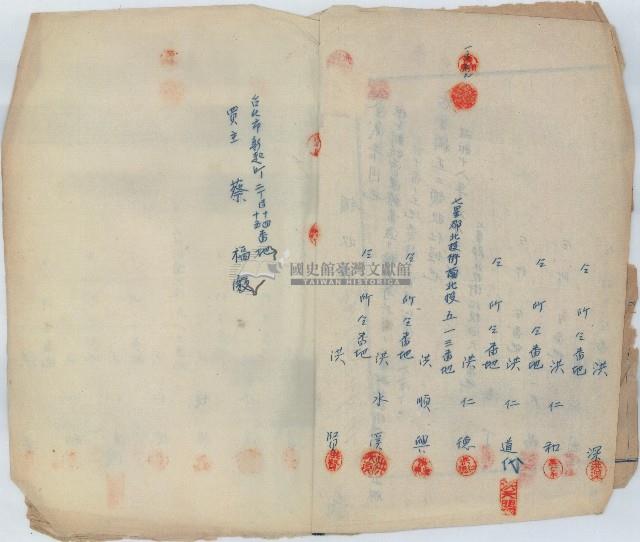 洪 深
仝所仝番地
洪仁和
仝所仝番地
洪仁道代
仝所仝番地
洪仁德
七星郡北投街 北投五一三番地
洪順興
仝所仝番地
洪水溪
仝所仝番地
洪 賢
台北市新起町二丁目十四番地
買主 蔡福
國史館臺灣文獻館
TAIWAN HISTORICA